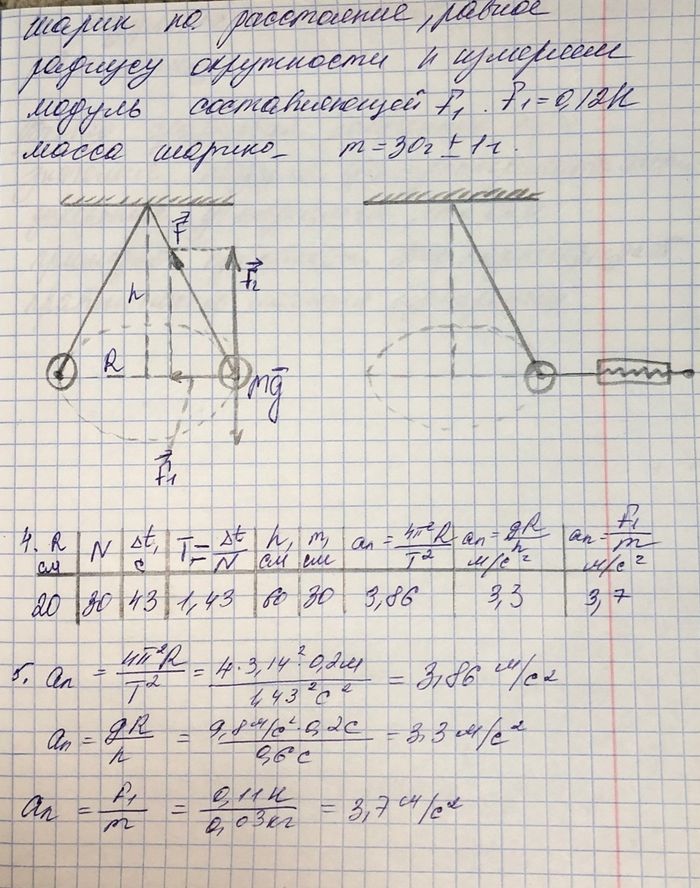 шарик на расстояние, равное
радиусу окружности и измеряем
модуль составляющей F₁. F₁ = 0,12 Н
масса шарика – m = 30г ± 1г.
F⃗
F⃗₂
h
R
mg⃗
F⃗₁
4. R см | N | Δt, с | T = Δt/N | h, см | m, см | aₙ = 4π²R/T² | aₙ = gR/h м/с² | aₙ = F₁/m м/с²
20 | 30 | 43 | 1,43 | 60 | 30 | 3,86 | 3,3 | 3,7
5. aₙ = 4π²R/T² = 4·3,14²·0,2м/1,43²с² = 3,86 м/с²
aₙ = gR/h = 9,8м/с²·0,2с/0,6с = 3,3 м/с²
aₙ = F₁/m = 0,11Н/0,03кг = 3,7 м/с²